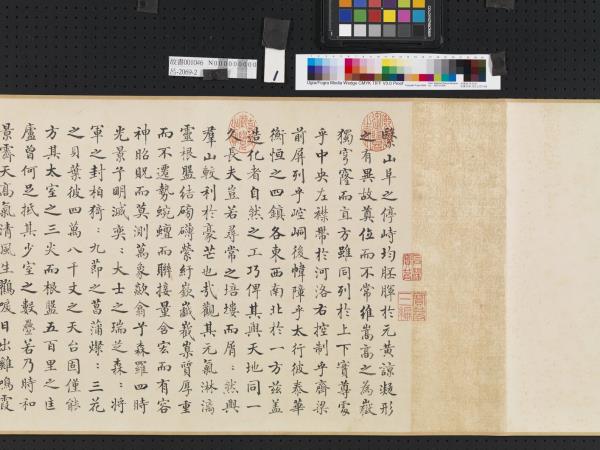 故書001046 N000000000
呂-2069-2
1
Ugra/Fogra Media Wedge CMYK-TIFF V3.0 Proof
繄山阜之停峙均胚腪於元黃諒凝形
之有異故奠位而不常維嵩高之為嶽
獨穹窿而直方雖同列於上下實尊處
乎中央左襟帶於河洛右控制乎齊梁
前屏列乎崆峒後幛障乎太行彼泰華
衡恒之四鎮各東西南北於一方茲蓋
造化者自然之工乃俾其與天地同一
久長夫豈若尋常之培塿而屑:然與
羣山較利於豪芒也哉觀其元氣淋漓
靈根盤結磅礡縈紆嶔質厚重
而不遷勢蜿蟺而聯接量含宏而有容
神昭貺而莫測萬象歛翕乎森羅四時
光景乎明滅奕:大士之瑞芝森:將
軍之封柏猗:九節之菖蒲燦:三花
之貝葉彼四萬八千丈之天台固僅能
方其太室之三尖而根盤五百里之匡
廬曾何足抵其少室之數疊若乃時和
景霽天高氣清風生日出雞鳴霞